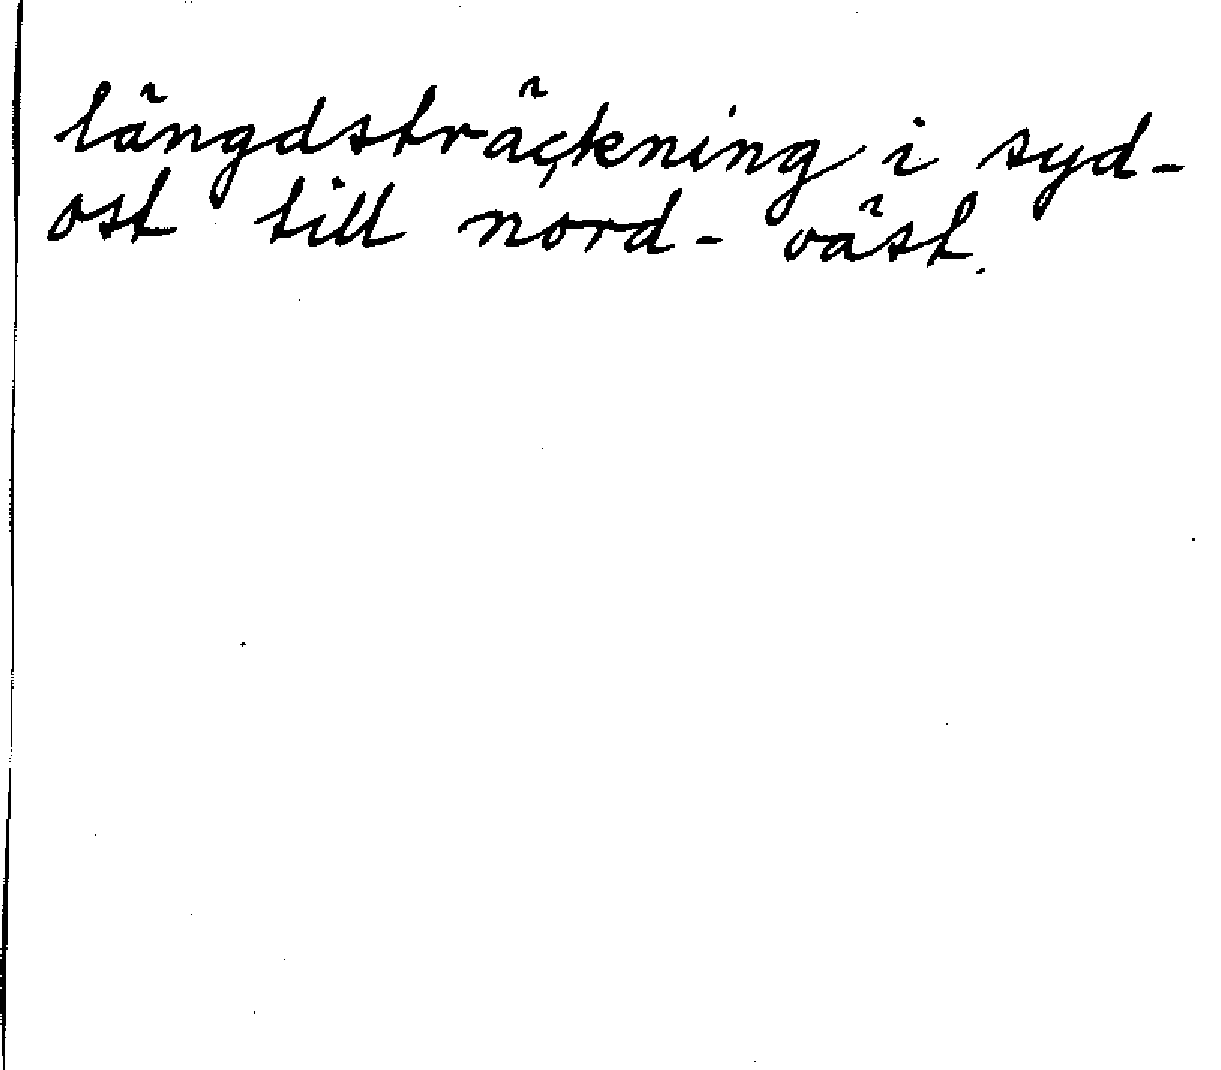 längdsträckning i syd-
ost till nord-väst.